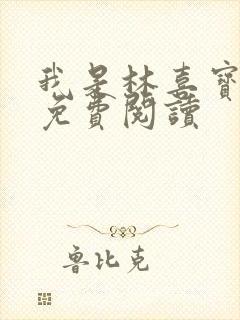 我是林喜寶
免費閱讀
魯比克